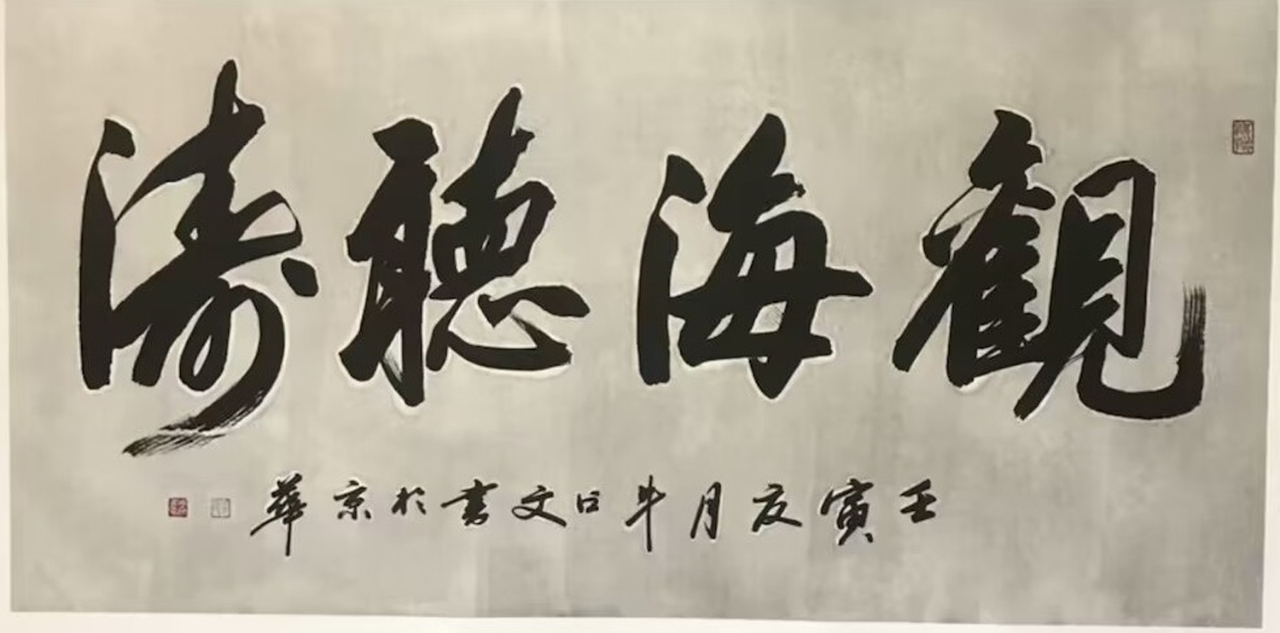 觀海聽濤
壬寅夏月牛文書於京華